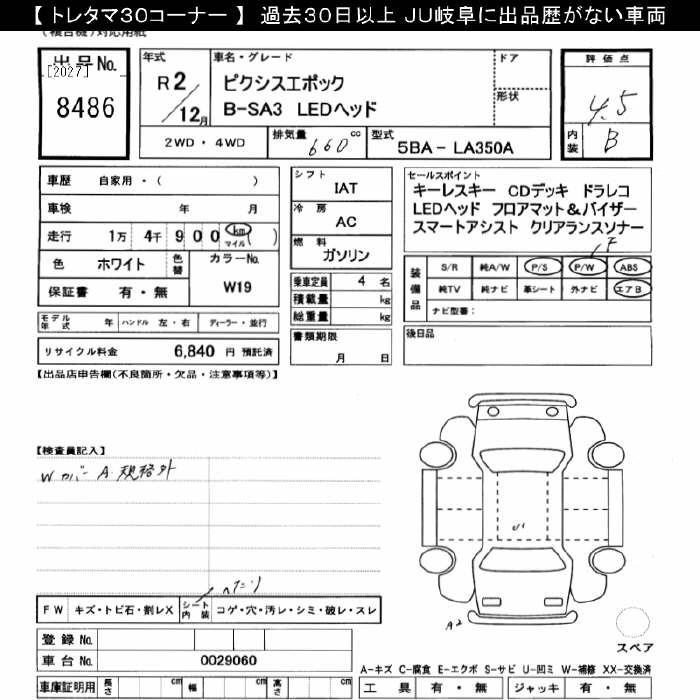 【 トレタマ30コーナー 】 過去30日以上 JU岐阜に出品歴がない車両
(複合機)対応用紙
出品No.
[2027]
8486
年式
R2/12月
車名・グレード
ピクシスエポック
B-SA3 LEDヘッド
ドア
形状
評価点
4.5
内装
B
2WD・4WD
排気量 660 cc
型式
5BA- LA350A
車歴 自家用・( )
車検 年 月
走行 1万 4千 900 km マイル ( )
色 ホワイト 色替 カラーNo.
保証書 有・無 W19
シフト
IAT
冷房
AC
燃料
ガソリン
乗車定員 4 名
積載量 kg
総重量 kg
書類期限
月 日
セールスポイント
キーレスキー CDデッキ ドラレコ
LEDヘッド フロアマット&バイザー
スマートアシスト クリアランスソナー
F
装備品
S/R 純A/W P/S P/W ABS
純TV 純ナビ 革シート 外ナビ エアB
ナビ型番:
後日品
モデル年式 年 ハンドル 左・右 ディーラー・並行
リサイクル料金 6,840 円 預託済
【出品店申告欄(不良箇所・欠品・注意事項等)】
【検査員記入】
Wカバー A 規格外
U1
A2
へたり
FW キズ・トビ石・割レX シート内装 コゲ・穴・汚レ・シミ・破レ・スレ
登録No.
車台No. 0029060
車庫証明用 長さ cm 幅 cm 高さ cm
スペア
A-キズ C-腐食 E-エクボ S-サビ U-凹ミ W-補修 XX-交換済
工具 有・無 ジャッキ 有・無